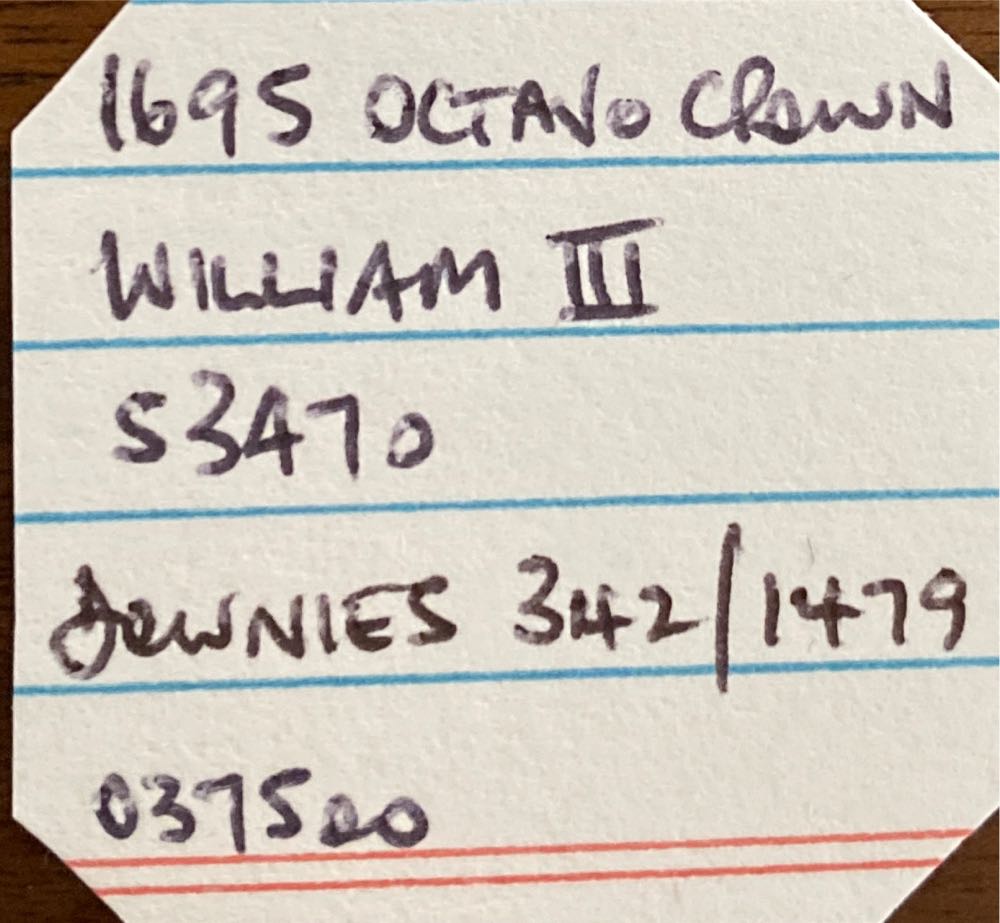 1695 OCTAVO CROWN
WILLIAM III
S3470
DOWNIES 342/1479
037500